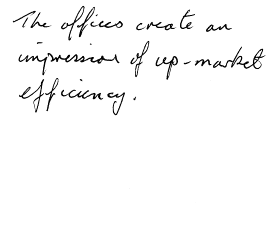 The offices create an
impression of up-market
efficiency.